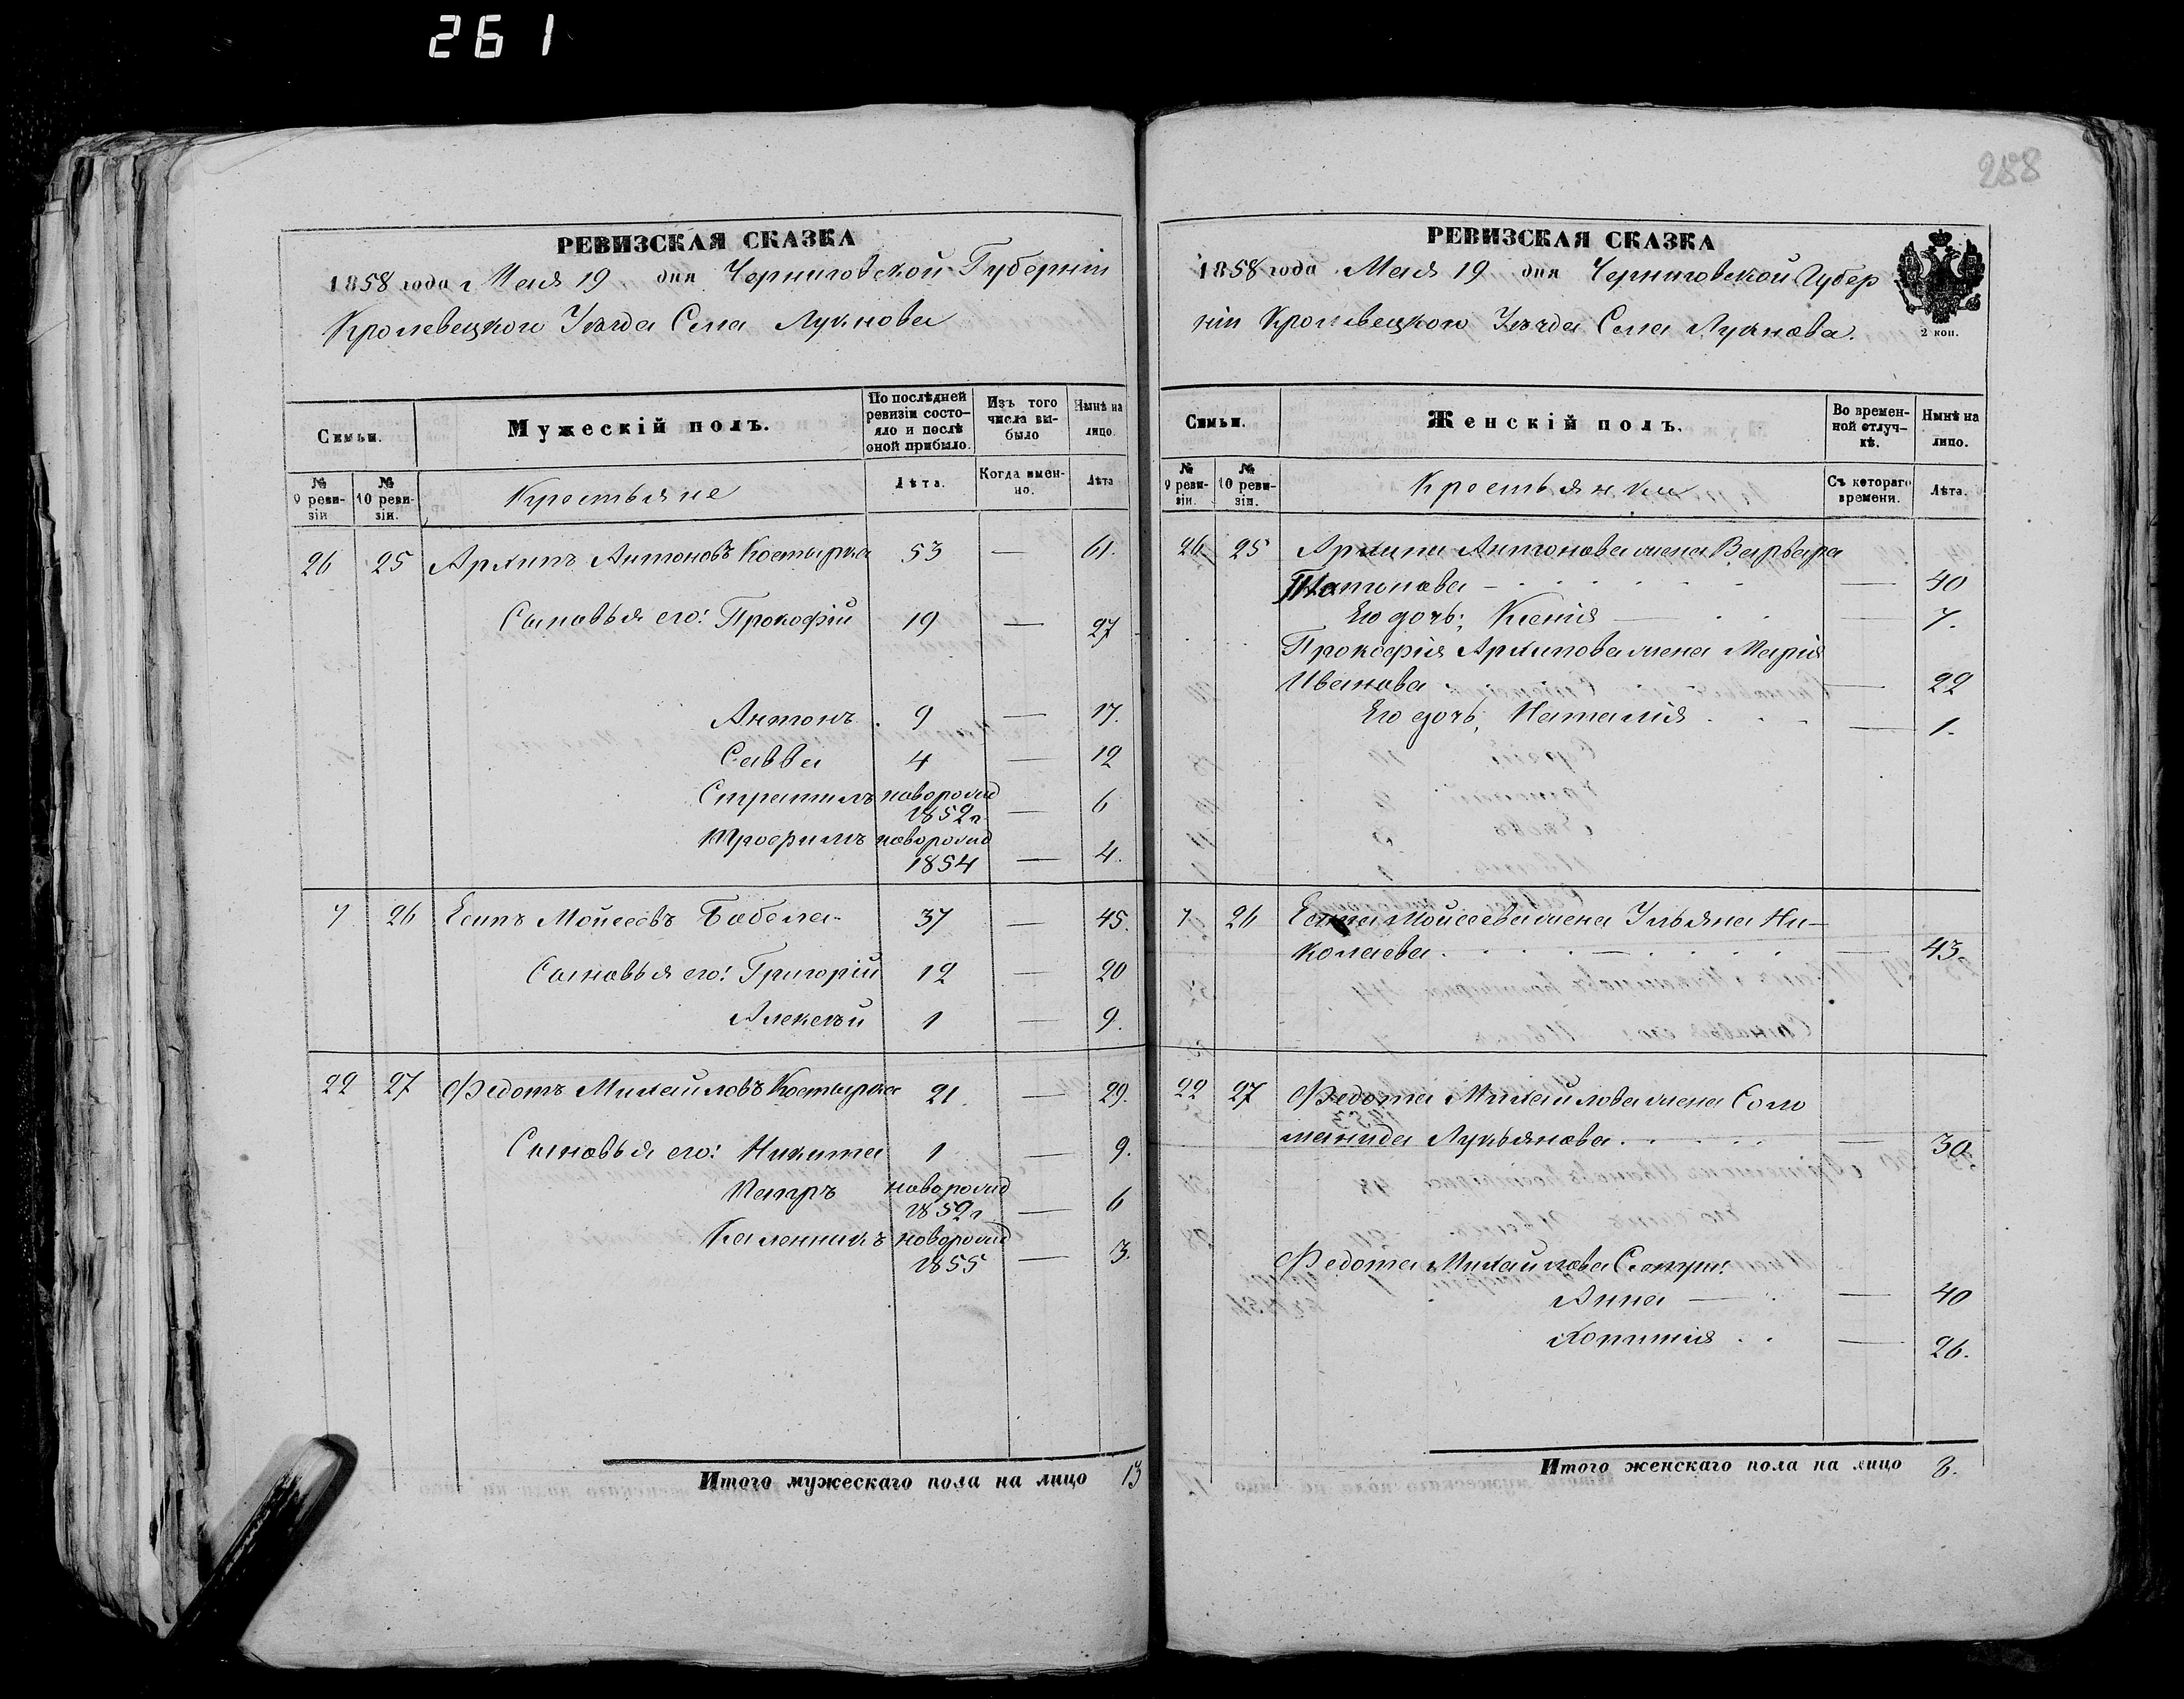 261
288
РЕВИЗСКАЯ СКАЗКА
1858 года Мая 19 дня Черниговской Губерніи
Кролевецкого Уѣзда Села Лукнова
Семьи.
Мужескій полъ.
По послѣдней ревизіи состо-
яло и послѣ
оной прибыло.
Изъ того
числа вы-
было
Нынѣ на
лицо.
№
9 реви-
зіи
№
10 реви-
зіи.
Крестьяне
Лѣта.
Когда имен-
но.
Лѣта
26 25 Архипъ Антоновъ Костырка 53 — 61.
Сыновья его: Прокофій 19 — 27
Антонъ. 9 — 17.
Савва 4 — 12
Стратилъ новорожд
1852 г. — 6
Трофимъ новорожд
1854 — 4.
7 26 Есипъ Мойсеевъ Бабела 37 — 45.
Сыновья его: Григорій 12 — 20
Алексѣй 1 — 9.
22 27 Федотъ Михайловъ Костырка 21. — 29.
Сыновья его: Никита 1 — 9.
Петръ новорожд
1852 г. — 6
Каленникъ новорожд
1855 — 3.
Итого мужескаго пола на лицо 13
РЕВИЗСКАЯ СКАЗКА
1858 года Мая 19 дня Черниговской Губер
ніи Кролевецкого Уѣзда Села Лукнова.
2 коп.
Семьи.
Женскій полъ.
Во времен-
ной отлуч-
кѣ.
Нынѣ на
лицо.
№
9 реви-
зіи.
№
10 реви-
зіи.
Крестьянки
Съ котораго
времени.
Лѣта.
26 25 Архипа Антонова жена Варвара
Платонова — 40
Его дочь: Ксенія — 7.
Прокофія Архипова жена Марія
Иванова. — 22
Его дочь, Наталія — 1.
7 26 Есипа Мойсеева жена Ульяна Ни-
колаева. — 43.
22 27 Федота Михайлова жена Соло
манида Лукьянова. — 30
Федота Михайлова Сестры:
Анна — 40
Хотинія — 26.
Итого женскаго пола на лицо 8.